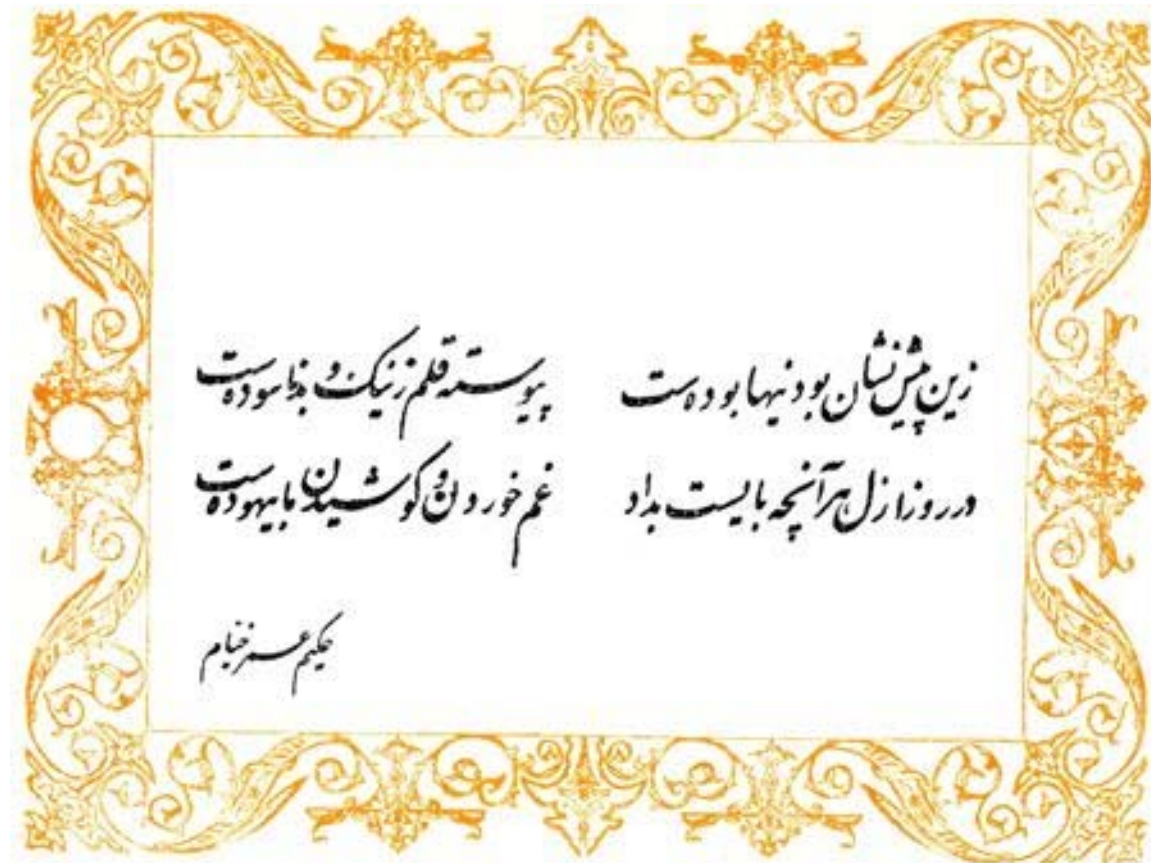 زین پیش نشان بودنیها بوده‌ست پیوسته قلم ز نیک و بد ناسوده‌ست
در روز ازل هر آنچه بایست بداد غم خوردن و کوشیدن ما بیهوده‌ست
حکیم عمر خیام